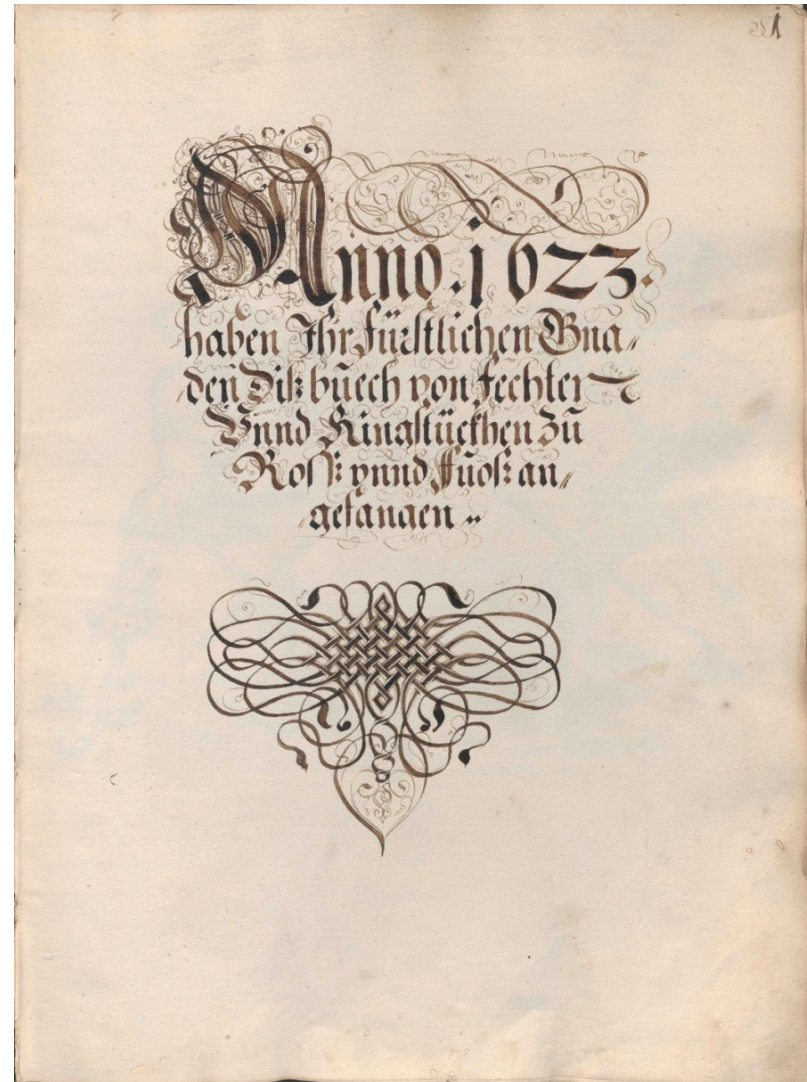 1
Anno .1623.
haben Ihr fürstlichen Gna//
den diß buech von fechter
Vnnd Ringstückhen zu
Ross vnnd fuoß an//
gefangen